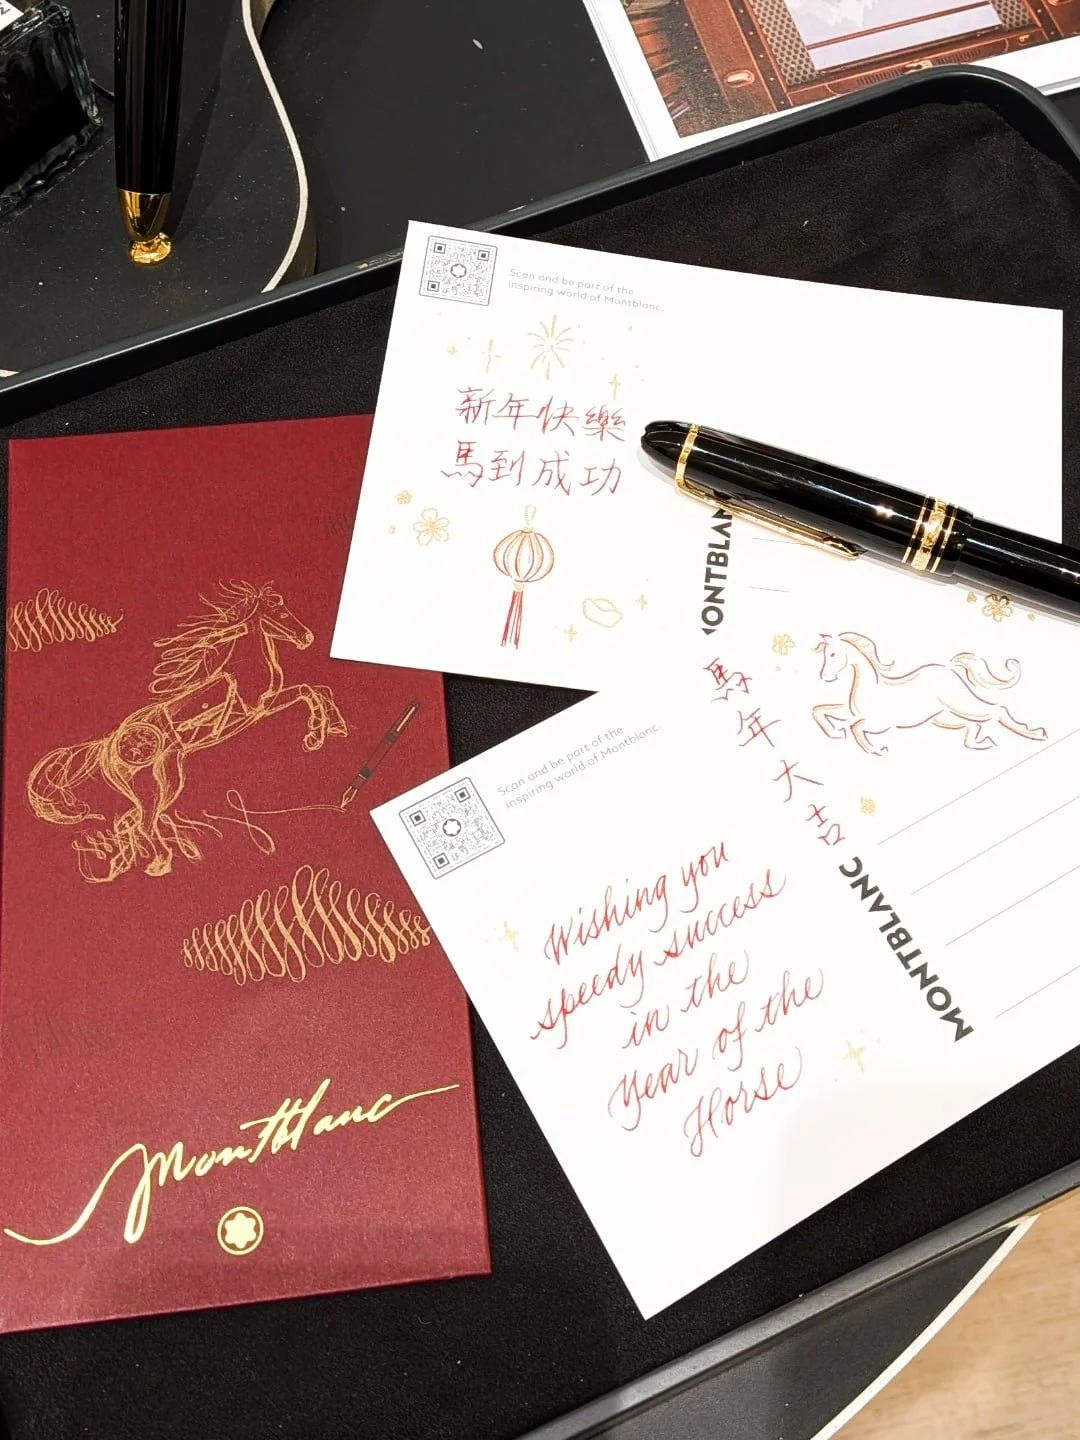 Scan and be part of the
inspiring world of Montblanc.
新年快樂
馬到成功
Scan and be part of the
inspiring world of Montblanc.
馬年大吉
MONTBLANC
Wishing you
speedy success
in the
Year of the
Horse
Montblanc